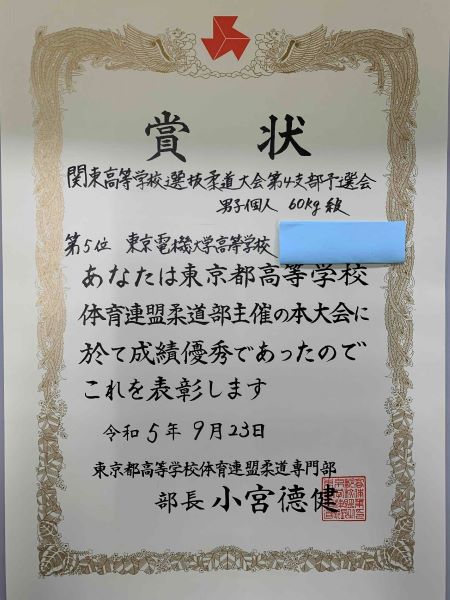 賞状
関東高等学校選抜柔道大会第4支部予選会
男子個人 60kg級
第5位 東京電機大学高等学校
あなたは東京都高等学校
体育連盟柔道部主催の本大会に
於て成績優秀であったので
これを表彰します
令和5年9月23日
東京都高等学校体育連盟柔道専門部
部長 小宮德健